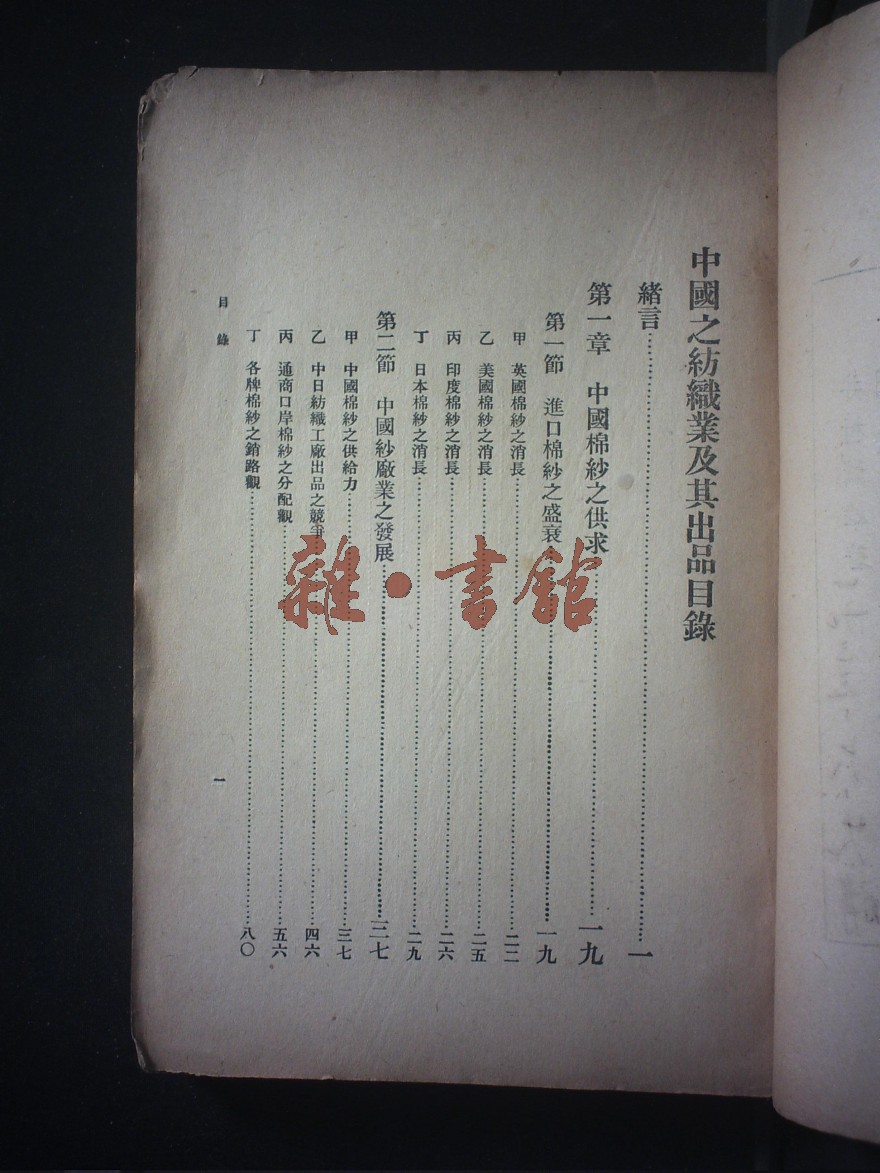 中國之紡織業及其出品目錄
緒言……一
第一章 中國棉紗之供求……一九
第一節 進口棉紗之盛衰……一九
甲 英國棉紗之消長……二二
乙 美國棉紗之消長……二五
丙 印度棉紗之消長……二六
丁 日本棉紗之消長……二九
第二節 中國紗廠業之發展……三七
甲 中國棉紗之供給力……三七
乙 中日紡織工廠出品之競爭……四六
丙 通商口岸棉紗之分配觀……五六
丁 各牌棉紗之銷路觀……八〇
目錄
一
雜·書館